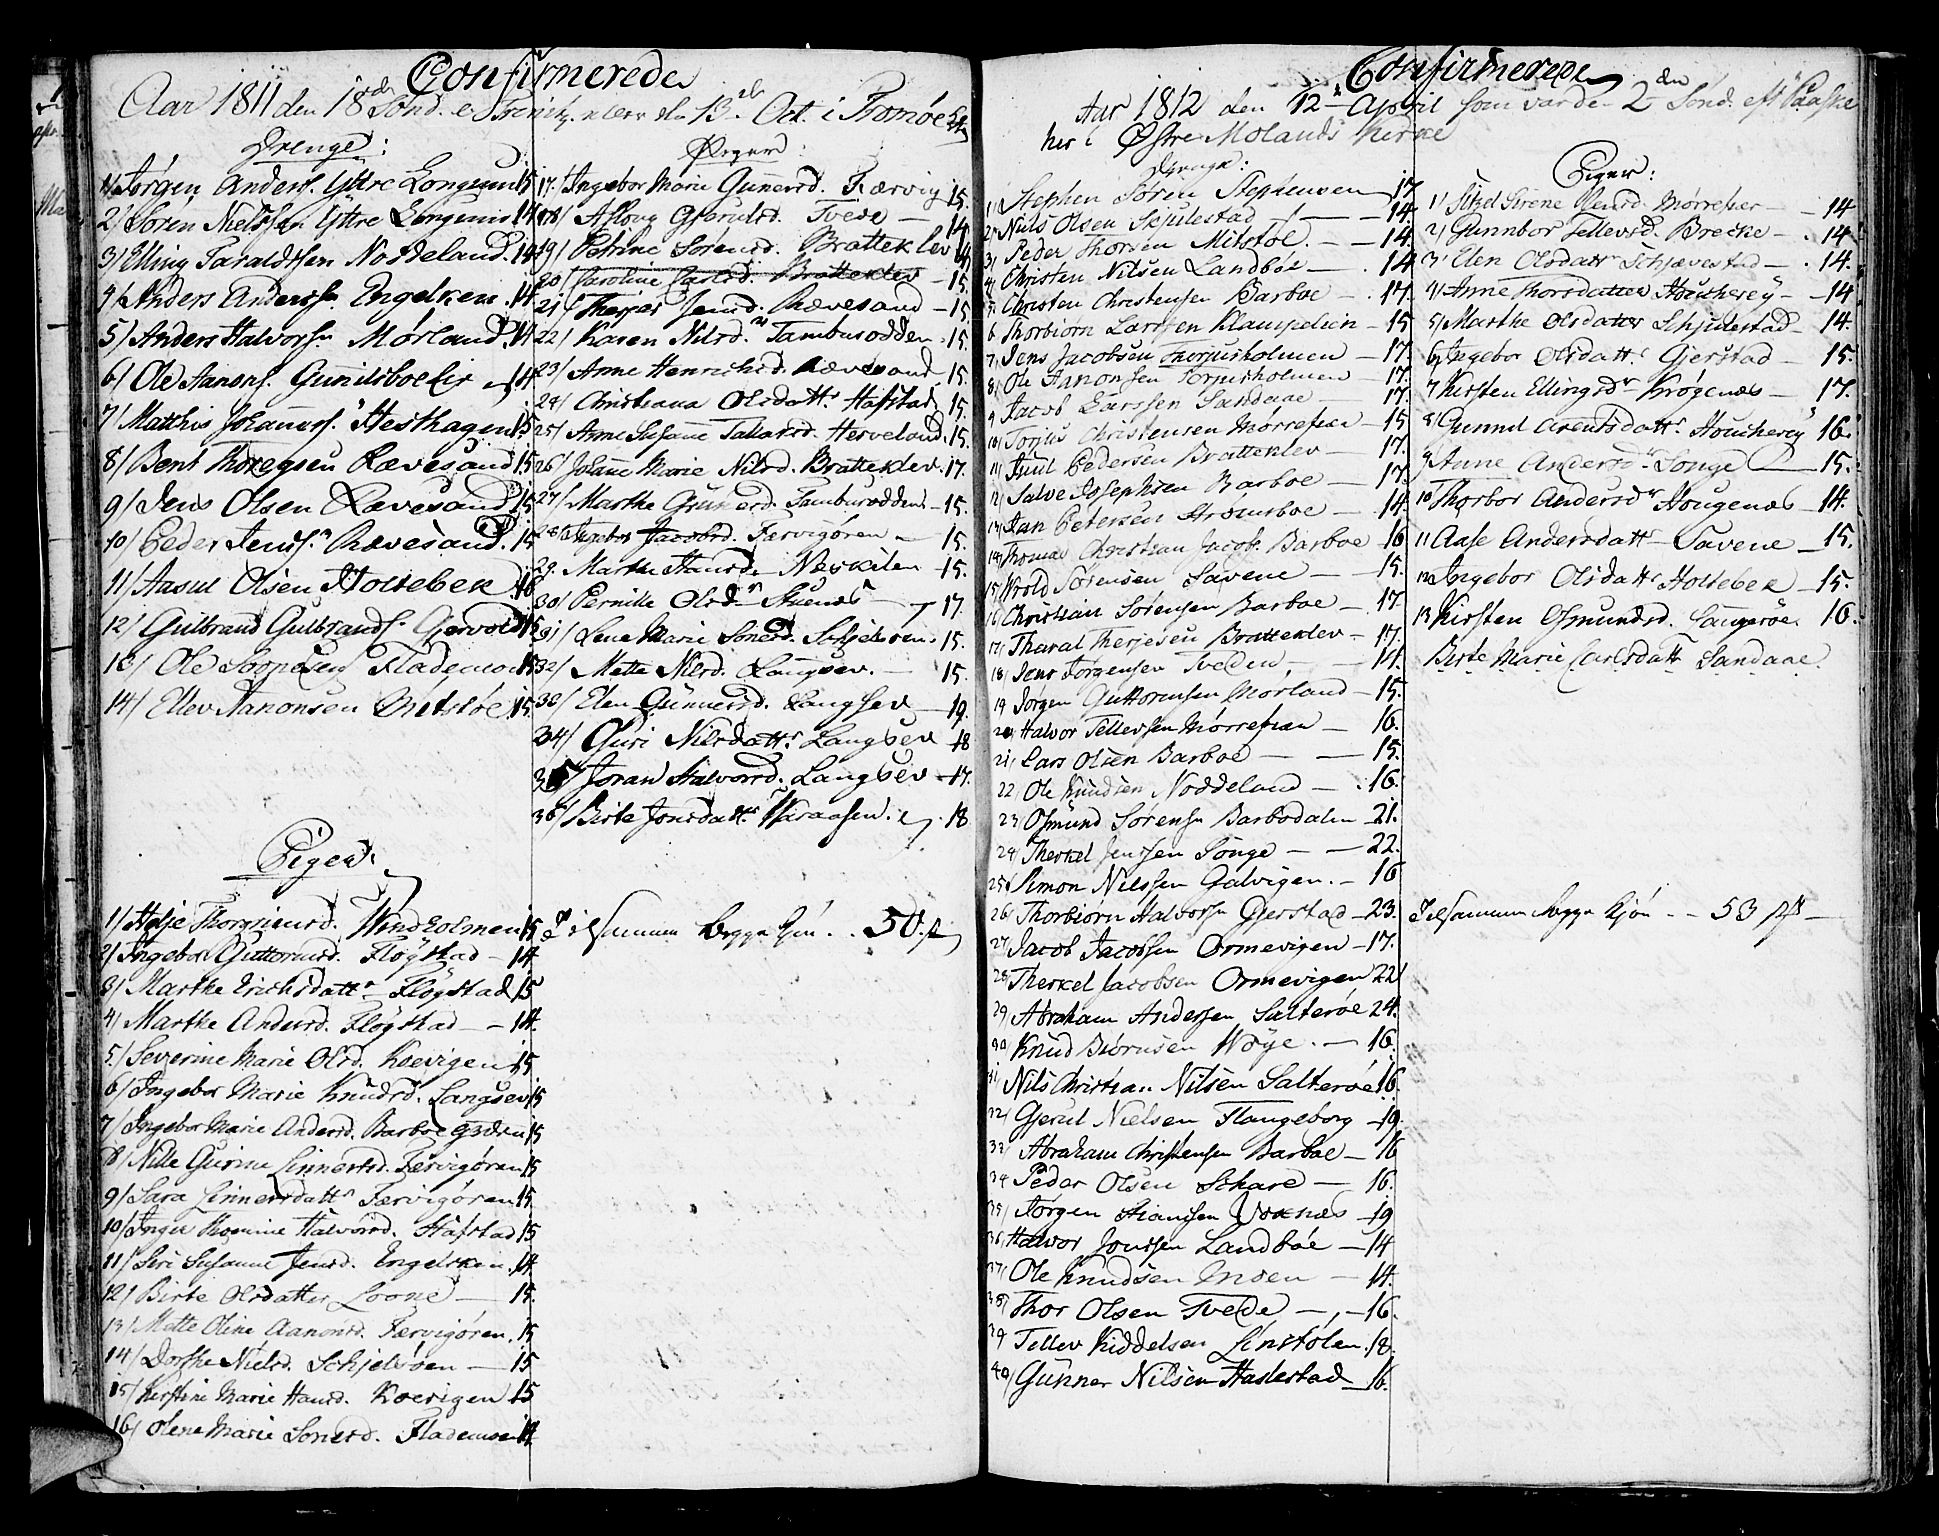 Confirmerede
Aar 1811 den 18de Sönd. e. Trinit. den 13de Oct. i Tromøe
Drenge:
1/ Jørgen Anders. Yttre Longum 15
2/ Sören Nielssen Yttre Longum 14
3/ Elling Taraldssen Noddeland 14
4/ Anders Anderss. Engelken 14
5/ Anders Halvorss. Mørland 14
6/ Ole Aanons. 14
7/ Matthis Johannes. Hesthagen 15
8/ Bent Thoregsen Rævesand 15
9/ Jens Olsen Rævesand 15
10/ Peder Jens. Rævesand 15
11/ Aasul Olsen Holtebek 16
12/ Gulbrand Gulbrands. Gjervold 15
13/ Ole Flademoen 15
14/ Ellev Aanonsen Mitstøe 15
Piger:
1/ Windholmen 15
2/ Ingebor Guttormsd. Fløystad 14
3/ Marthe Erichsdatt. Fløgstad 15
4/ Marthe Andersd. Fløgstad 14
5/ Severine Marie Olsd. Koevigen 15
6/ Ingebor Marie Knudsd. Langsev 15
7/ Ingebor Marie Andersd. Barboe 15
8/ Nille Gurine Linnertsd. Færvigøren 15
9/ Sara Linnertsdatt. Færvigøren 15
10/ Inger Thomine Halvorsd. Hafstad 15
11/ Siri Susanne Jensd. Engelken 14
12/ Birte Olsdatter Loone 15
13/ Mette Oline Aanonsd. Færvigøren 15
14/ Dorthe Nielsd. Schjelvøen 15
15/ Kirstine Marie Hansd. Koevigen 15
16/ Olene Marie Sörensd. Flademoen 14
Piger:
17/ Ingebor Marie Gunnersd. Færvig 15
18/ Asloug Gjeruldsd. Tvede 14
19/ Petrine Sørensd. Bratteklev 14
20/ Caroline Carlsd. Bratteklev 15
21/ Jensd. Rævesand 15
22/ Karen Nilsd. Tambursodden 15
23/ Anne Henrichsd. Rævesand 15
24/ Christiana Olsdatt. Hafstad 15
25/ Anne Susanne Tallaksd. Herveland 15
26/ Johanne Marie Nilsd. Bratteklev 17
27/ Marthe Gunnersd. Tambursodden 15
28/ Ingebor Jacobsd. Færvigøren 15
29 Marthe Hansd. Neskilen 15
30/ Pernille Olsd. Stuenæs 17
31/ Lene Marie Sönersd. Schjelvøen 15
32/ Mette Nilsd. Langsev 15
33/ Elen Gunnersd. Langsev 19
34/ Guri Nilsdatt. Langsev 18
35/ Joran Halvorsd. Langsev 17
36/ Birte Jonsdatt. 18
Tilsammen begge Kjön 50
Confirmerede
Aar 1812 den 12te April som var de 2den Sönd. eft Paaske
her i Østre Molands Kirke
Drenge:
1/ Stephen Sören Stephensen 17
2/ Niels Olsen Skjulestad 14
3/ Peder Thorsen Mitstøl 14
4/ Christen Nilsen Landböe 14
5 Christen Christensen Barboe 17
6 Thorbiørn Larssen Klampelien 15
7/ Jens Jacobsen Thorjusholmen 17
8/ Ole Aanonsen Torjusholmen 17
9 Jacob Larssen Sandaae 17
10/ Torjus Christensen Mørrefiær 15
11/ Juul Pedersen Bratteklev 17
12/ Salve Josephsen Barboe 17
13/ Jan Petersen Strömsboe 14
14/ Thomas Christian Jacobs. Barboe 16
15/ Wrold Sörensen Savene 15
16/ Christian Sørensen Barboe 17
17/ Tharal Therjesen Bratteklev 17
18/ Jens Jørgensen Tveden 14
19 Jørgen Guttormsen Mørland 15
20/ Halvor Tellevsen Mørrefiær 16
21/ Lars Olsen Barboe 15
22/ Ole Knudsen Noddeland 16
23/ Osmund Sørens. Barbodalen 21
24/ Therkel Jenssen Songe 22
25/ Simon Nielssen Galvigen 16
26/ Thorbiørn Halvorss. Gjerstad 23
27/ Jacob Jacobsen Ormevigen 17
28/ Therkel Jacobsen Ormevigen 22
29/ Abraham Andersen Salterøe 24
30/ Knud Biørnsen Wøye 16
31 Nils Christian Nilsen Salterøe 16
32/ Gjerul Nielsen Flangeborg 19
33/ Abraham Christensen Barboe 16
34 Peder Olsen Schare 16
35/ Jørgen Hanssen Voxnæs 19
36/ Halvor Jonssen Landbøe 14
37/ Ole Knudsen Moen 14
38/ Thor Olsen Tvede 16
39 Tellev Kiddelsen Linstølen 18
40/ Gunner Nilsen Haslestad 16
Piger:
1/ Sitzel Sirene Mørrefiær 14
2/ Gunnbor Tellevsd. Brekke 14
3/ Elen Olsdatt. Schjævestad 14
4/ Anne Thorsdatter Houcherey 14
5/ Marthe Olsdatter Schjulestad 14
6/ Ingebor Olsdatt. Gjerstad 15
7 Kirsten Ellingsd. Krøgenæs 17
8/ Gunnil Arentsdatt. Houcherey 16
9 Anne Andersd. Songe 15
10 Thorbor Andersd. Hougenæs 14
11 Aase Andersdatt. Savene 15
12 Ingebor Olsdatt. Holtebek 15
13 Kirsten Osmundsd. Langerøe 16
Birte Marie Carlsdatt. Sandaae
Tilsammen begge Kjön 53